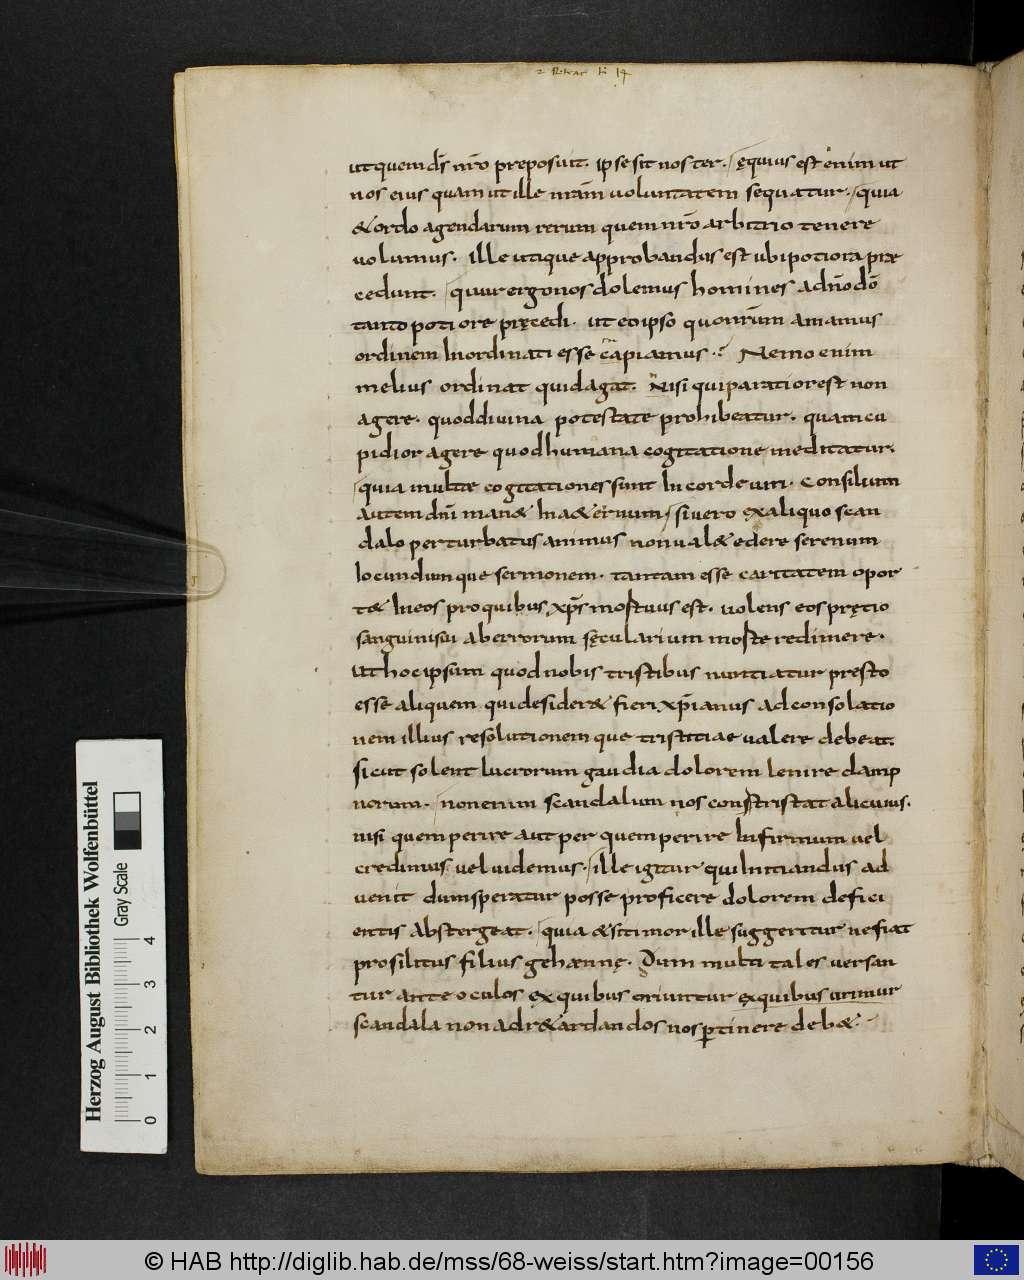 ut quem ds̄ nr̄o preposuit. ipse sit noster. ęquius est enim ut
nos eius quam ut ille nr̄am uoluntatem sequatur. quia
& ordo agendarum rerum quem nr̄o arbitrio tenere
uolumus. ille utique approbandus est ubi potiora præ
cedunt. quur ergo nos dolemus homines ad n̄o dō
tanto potiore pręcedi. ut eo ipso quo nr̄um amamus
ordinem Inordinati esse cupiamus.? Nemo enim
melius ordinat quid agat. Nisi qui paratior est non
agere. quod diuina potestate prohibeatur. quam cu
pidior agere quod humana cogitatione meditatur.
quia multæ cogitationes sunt In corde uiri. Consilium
autem dn̄i man& In aeternum, si uero ex aliquo scan
dalo perturbatus animus non ual& edere serenum
Iocundumque sermonem. tantam esse caritatem opor
t& In eos pro quibus xp̄s mortuus est. uolens eos prętio
sanguinis sui ab errorum sęcularium morte redimere.
ut hoc ipsum quod nobis tristibus nuntiatur presto
esse aliquem qui desider& fieri xp̄ianus ad consolatio
nem illius resolutionemque tristitiae ualere debeat.
sicut solent lucrorum gaudia dolorem lenire damp
norum. non enim scandalum nos constristat alicuius.
nisi quem perire aut per quem perire Infirmum uel
credimus uel uidemus. ille igitur qui Initiandus ad
uenit dum speratur posse proficere dolorem defici
entis abstergeat. quia & si timor ille suggeritur ne fiat
prosilitus filius gehænnę. Dum multi tales uersan
tur ante oculos ex quibus oriuntur ex quibus urimur
scandala non ad r&ardandos nos ꝑtinere deb&.
Herzog August Bibliothek Wolfenbüttel
Gray Scale
0 1 2 3 4
© HAB http://diglib.hab.de/mss/68-weiss/start.htm?image=00156